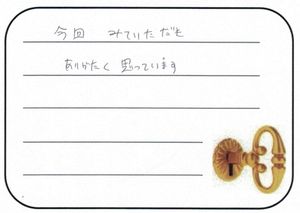 今回 みていただき
ありがたく 思っています